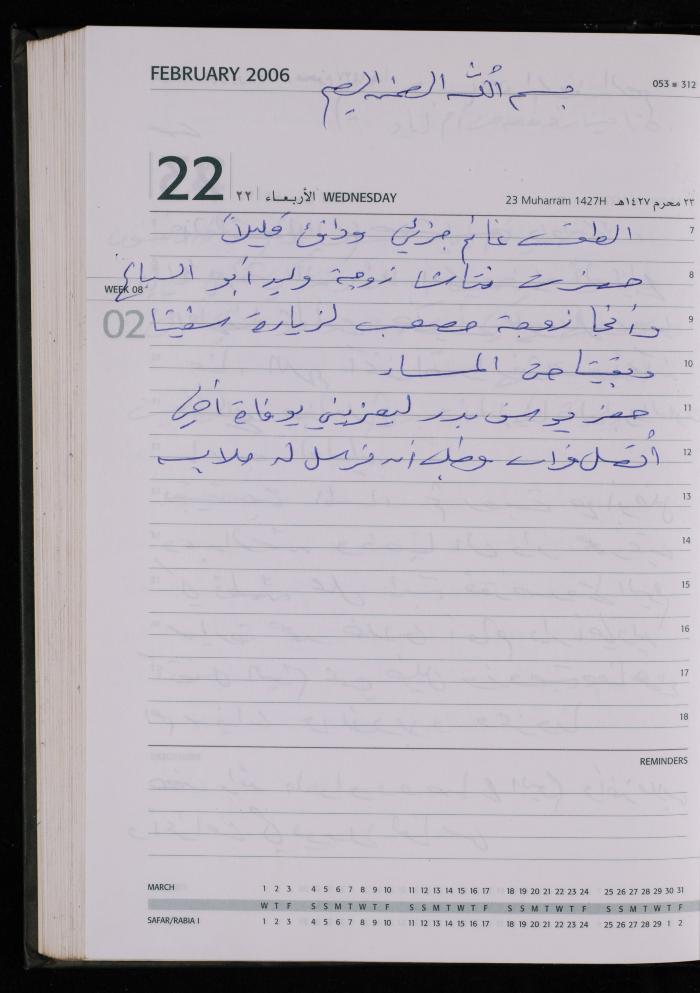 FEBRUARY 2006
053 ■ 312
بسم الله الرحمن الرحيم
22 ٢٢ الأربعاء WEDNESDAY
23 Muharram 1427H ٢٣ محرم ١٤٢٧هـ
7 الطقس غائم جزئي ودافئ قليلاً
8 حضرت نتاشا زوجة وليد أبو السباع
WEEK 08
02
9 زوجة مصعب لزيارة
10 وبقيتا حتى المساء
11 حضر يوسف بدر ليعزيني بوفاة أخي
12 أتصل فؤاد وطلب أن نرسل له ملابسه
13
14
15
16
17
18
REMINDERS
MARCH 1 2 3 4 5 6 7 8 9 10 11 12 13 14 15 16 17 18 19 20 21 22 23 24 25 26 27 28 29 30 31
W T F S S M T W T F S S M T W T F S S M T W T F S S M T W T F
SAFAR/RABIA I 1 2 3 4 5 6 7 8 9 10 11 12 13 14 15 16 17 18 19 20 21 22 23 24 25 26 27 28 29 1 2